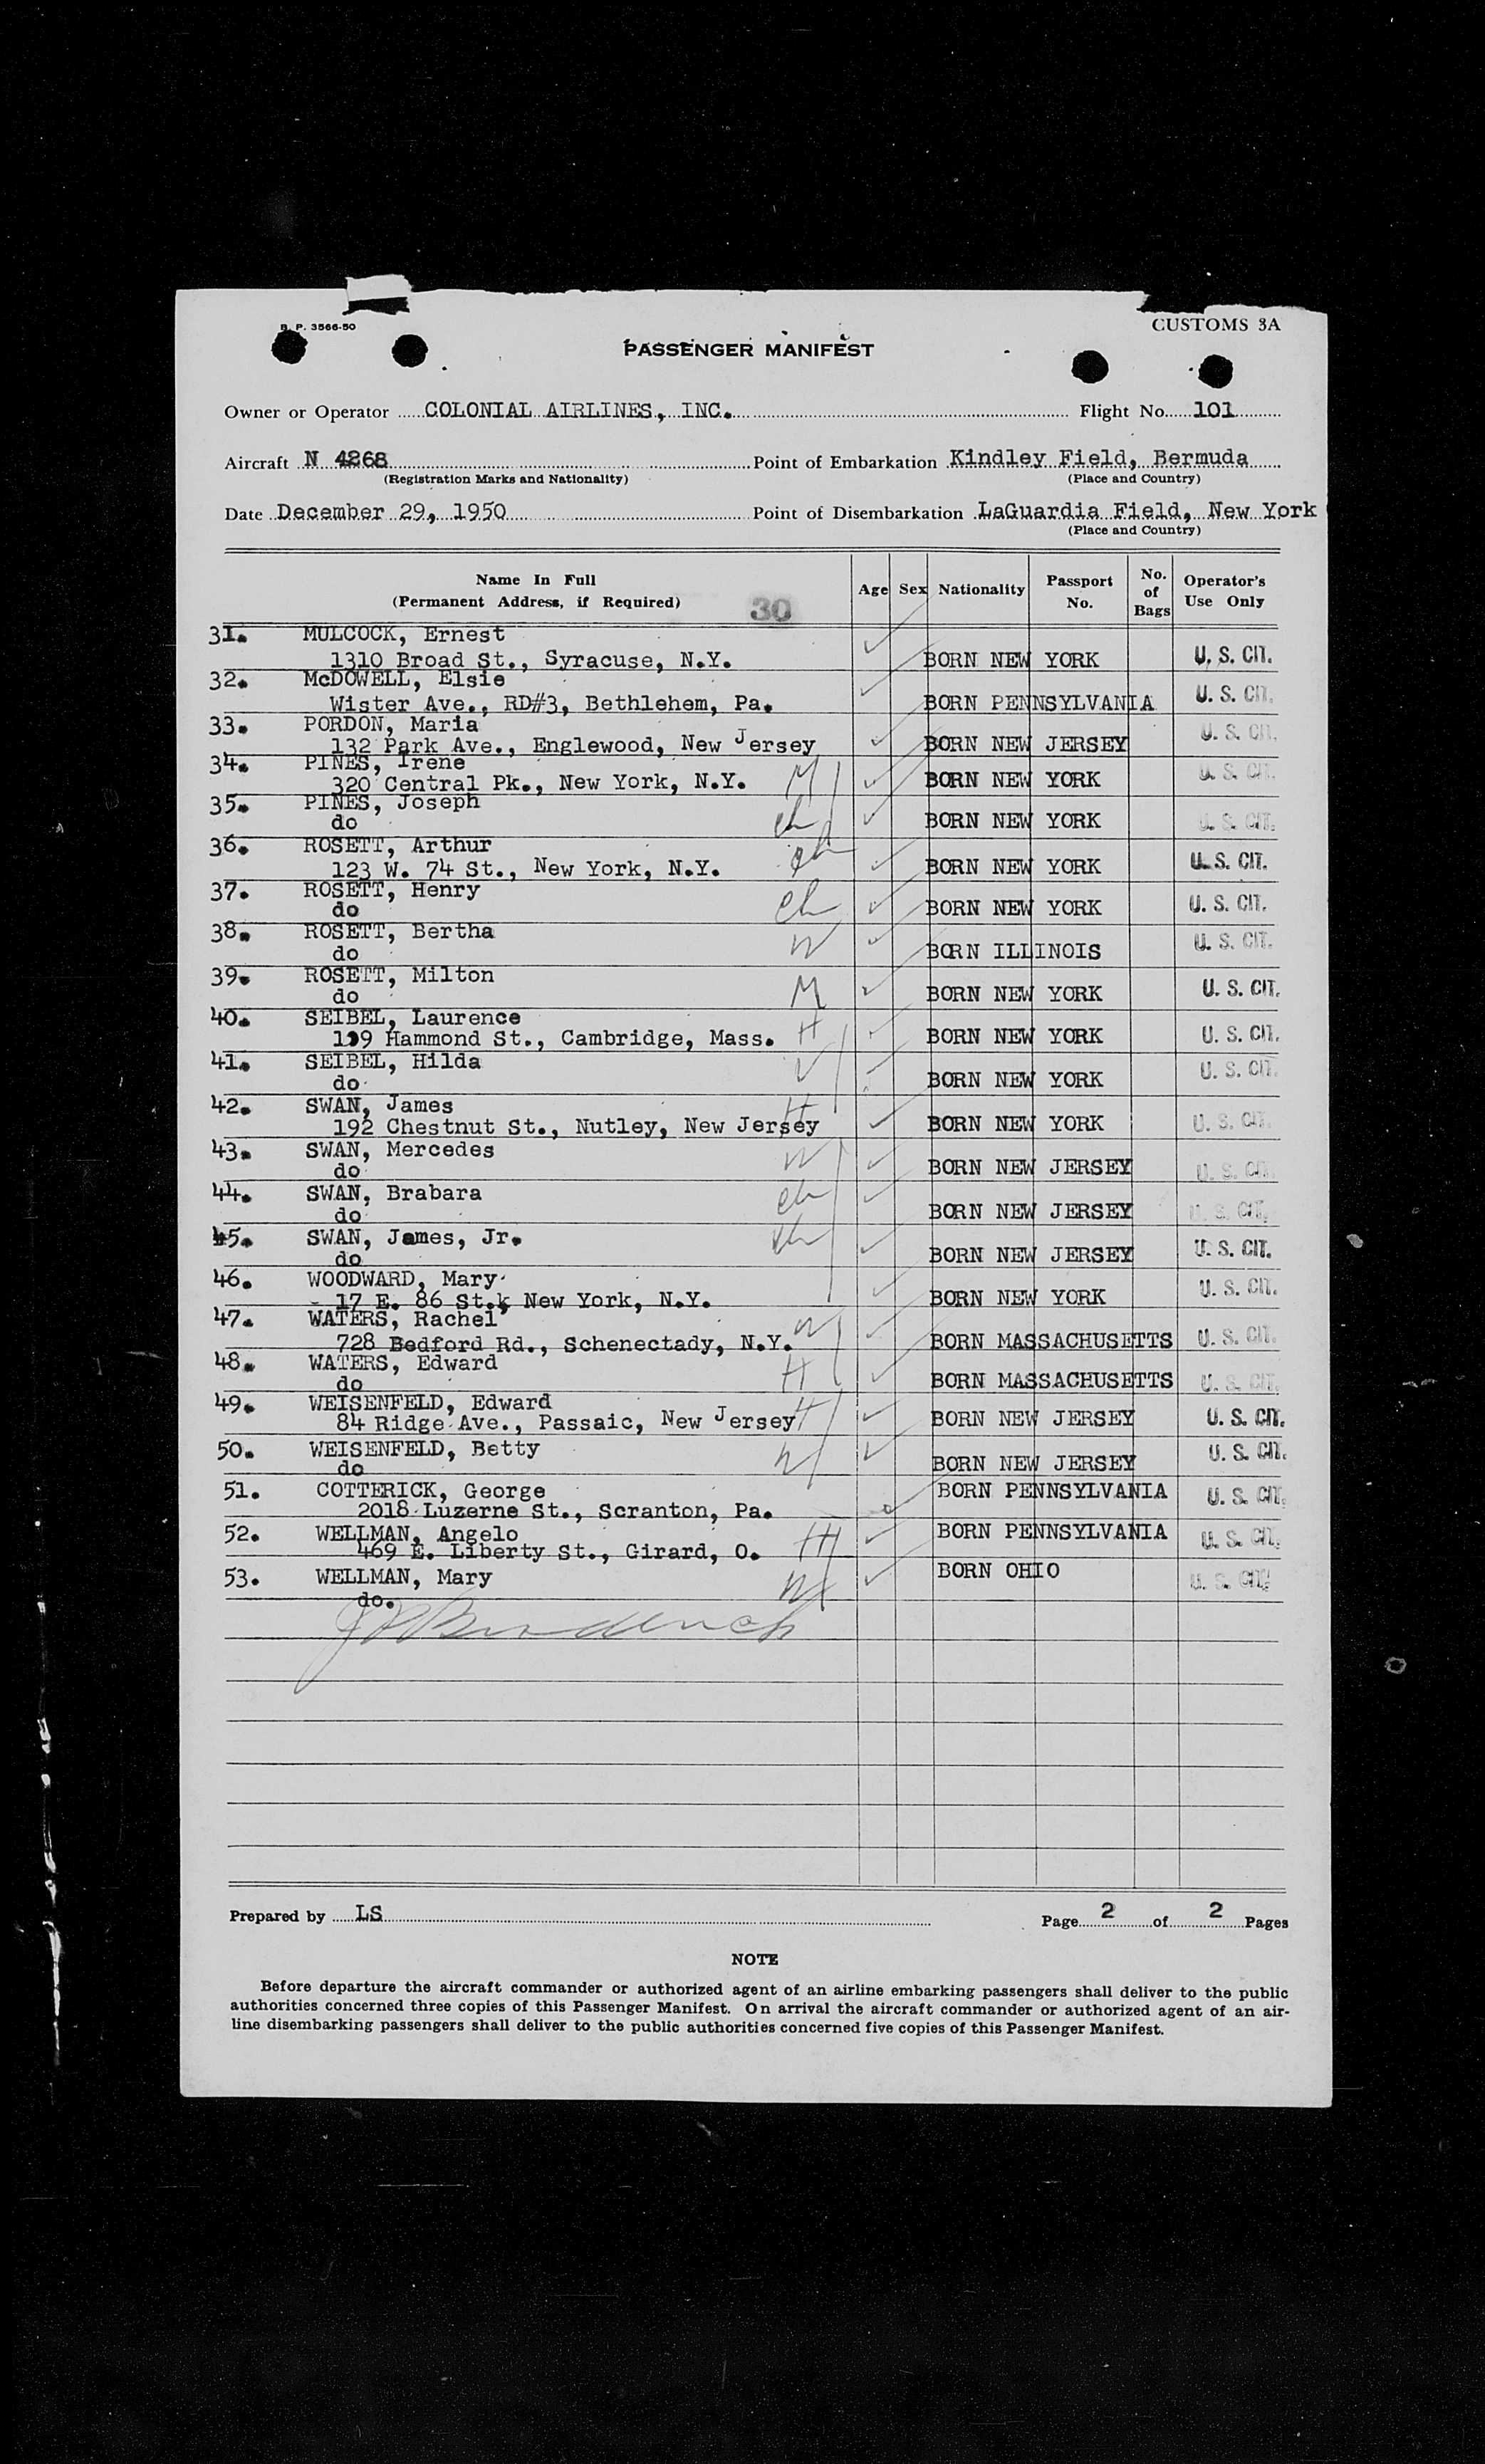 B. P. 3566-50
CUSTOMS 3A
PASSENGER MANIFEST
Owner or Operator COLONIAL AIRLINES, INC. Flight No. 101
Aircraft N 4268 Point of Embarkation Kindley Field, Bermuda
(Registration Marks and Nationality) (Place and Country)
Date December 29, 1950 Point of Disembarkation LaGuardia Field, New York
(Place and Country)
Name In Full (Permanent Address, if Required) 30 Age Sex Nationality Passport No. No. of Bags Operator's Use Only
31. MULCOCK, Ernest
1310 Broad St., Syracuse, N.Y. BORN NEW YORK U. S. CIT.
32. McDOWELL, Elsie
Wister Ave., RD#3, Bethlehem, Pa. BORN PENNSYLVANIA U. S. CIT.
33. PORDON, Maria
132 Park Ave., Englewood, New Jersey BORN NEW JERSEY U. S. CIT.
34. PINES, Irene
320 Central Pk., New York, N.Y. M BORN NEW YORK U. S. CIT.
35. PINES, Joseph
do ch BORN NEW YORK U. S. CIT.
36. ROSETT, Arthur
123 W. 74 St., New York, N.Y. ch BORN NEW YORK U. S. CIT.
37. ROSETT, Henry
do ch BORN NEW YORK U. S. CIT.
38. ROSETT, Bertha
do W BORN ILLINOIS U. S. CIT.
39. ROSETT, Milton
do M BORN NEW YORK U. S. CIT.
40. SEIBEL, Laurence
199 Hammond St., Cambridge, Mass. H BORN NEW YORK U. S. CIT.
41. SEIBEL, Hilda
do W BORN NEW YORK U. S. CIT.
42. SWAN, James
192 Chestnut St., Nutley, New Jersey H BORN NEW YORK U. S. CIT.
43. SWAN, Mercedes
do W BORN NEW JERSEY U. S. CIT.
44. SWAN, Brabara
do ch BORN NEW JERSEY U. S. CIT.
45. SWAN, James, Jr.
do ch BORN NEW JERSEY U. S. CIT.
46. WOODWARD, Mary
17 E. 86 St.k New York, N.Y. BORN NEW YORK U. S. CIT.
47. WATERS, Rachel
728 Bedford Rd., Schenectady, N.Y. W BORN MASSACHUSETTS U. S. CIT.
48. WATERS, Edward
do H BORN MASSACHUSETTS U. S. CIT.
49. WEISENFELD, Edward
84 Ridge Ave., Passaic, New Jersey H BORN NEW JERSEY U. S. CIT.
50. WEISENFELD, Betty
do W BORN NEW JERSEY U. S. CIT.
51. COTTERICK, George BORN PENNSYLVANIA
2018 Luzerne St., Scranton, Pa. U. S. CIT.
52. WELLMAN, Angelo BORN PENNSYLVANIA
469 E. Liberty St., Girard, O. H U. S. CIT.
53. WELLMAN, Mary BORN OHIO
do. W U. S. CIT.
Prepared by LS Page 2 of 2 Pages
NOTE
Before departure the aircraft commander or authorized agent of an airline embarking passengers shall deliver to the public
authorities concerned three copies of this Passenger Manifest. On arrival the aircraft commander or authorized agent of an air-
line disembarking passengers shall deliver to the public authorities concerned five copies of this Passenger Manifest.